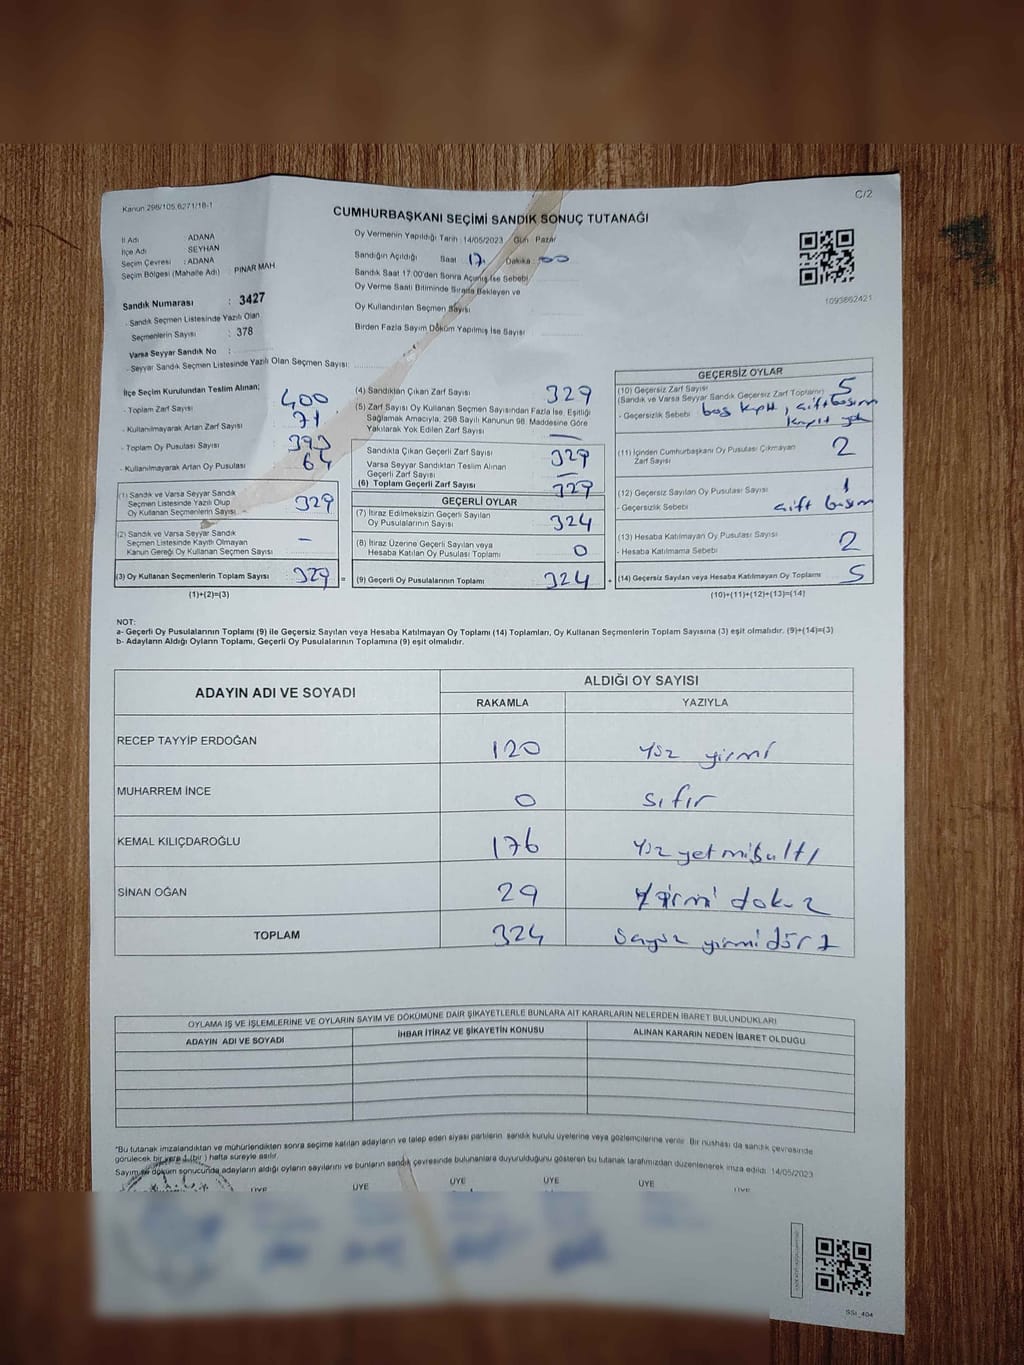 C/2
Kanun 298/105,6271/18-1
CUMHURBAŞKANI SEÇİMİ SANDIK SONUÇ TUTANAĞI
İl Adı : ADANA
İlçe Adı SEYHAN
Seçim Çevresi : ADANA
Seçim Bölgesi (Mahalle Adı) : PINAR MAH.
Sandık Numarası : 3427
- Sandık Seçmen Listesinde Yazılı Olan
Seçmenlerin Sayısı : 378
Varsa Seyyar Sandık No :
- Seyyar Sandık Seçmen Listesinde Yazılı Olan Seçmen Sayısı:
Oy Vermenin Yapıldığı Tarih :14/05/2023 Gün : Pazar
Sandığın Açıldığı Saat 17. Dakika :00
Sandık Saat 17.00'den Sonra Açılmış İse Sebebi
Oy Verme Saati Bitiminde Sırada Bekleyen ve
Oy Kullandırılan Seçmen Sayısı
Birden Fazla Sayım Döküm Yapılmış İse Sayısı
1093862421
İlçe Seçim Kurulundan Teslim Alınan;
- Toplam Zarf Sayısı 400
- Kullanılmayarak Artan Zarf Sayısı 71
- Toplam Oy Pusulası Sayısı 393
- Kullanılmayarak Artan Oy Pusulası 64
(1) Sandık ve Varsa Seyyar Sandık
Seçmen Listesinde Yazılı Olup
Oy Kullanan Seçmenlerin Sayısı 329
(2) Sandık ve Varsa Seyyar Sandık
Seçmen Listesinde Kayıtlı Olmayan
Kanun Gereği Oy Kullanan Seçmen Sayısı -
(3) Oy Kullanan Seçmenlerin Toplam Sayısı 329 =
(1)+(2)=(3)
(4) Sandıktan Çıkan Zarf Sayısı 329
(5) Zarf Sayısı Oy Kullanan Seçmen Sayısından Fazla İse, Eşitliği
Sağlamak Amacıyla, 298 Sayılı Kanunun 98. Maddesine Göre
Yakılarak Yok Edilen Zarf Sayısı —
Sandıkta Çıkan Geçerli Zarf Sayısı 329
Varsa Seyyar Sandıktan Teslim Alınan
Geçerli Zarf Sayısı —
(6) Toplam Geçerli Zarf Sayısı 329
GEÇERLİ OYLAR
(7) İtiraz Edilmeksizin Geçerli Sayılan
Oy Pusulalarının Sayısı 324
(8) İtiraz Üzerine Geçerli Sayılan veya
Hesaba Katılan Oy Pusulası Toplamı 0
(9) Geçerli Oy Pusulalarının Toplamı 324 +
GEÇERSİZ OYLAR
(10) Geçersiz Zarf Sayısı 5
(Sandık ve Varsa Seyyar Sandık Geçersiz Zarf Toplamı)
- Geçersizlik Sebebi boş , çift basım
(11) İçinden Cumhurbaşkanı Oy Pusulası Çıkmayan
Zarf Sayısı 2
(12) Geçersiz Sayılan Oy Pusulası Sayısı 1
- Geçersizlik Sebebi çift basım
(13) Hesaba Katılmayan Oy Pusulası Sayısı 2
- Hesaba Katılmama Sebebi
(14) Geçersiz Sayılan veya Hesaba Katılmayan Oy Toplamı 5
(10)+(11)+(12)+(13)=(14)
NOT:
a- Geçerli Oy Pusulalarının Toplamı (9) ile Geçersiz Sayılan veya Hesaba Katılmayan Oy Toplamı (14) Toplamları, Oy Kullanan Seçmenlerin Toplam Sayısına (3) eşit olmalıdır. (9)+(14)=(3)
b- Adayların Aldığı Oyların Toplamı, Geçerli Oy Pusulalarının Toplamına (9) eşit olmalıdır.
ADAYIN ADI VE SOYADI ALDIĞI OY SAYISI
RAKAMLA YAZIYLA
RECEP TAYYİP ERDOĞAN 120 yüz yirmi
MUHARREM İNCE 0 sıfır
KEMAL KILIÇDAROĞLU 176 yüz yetmişaltı
SİNAN OĞAN 29 yirmi dokuz
TOPLAM 324 yirmidört
OYLAMA İŞ VE İŞLEMLERİNE VE OYLARIN SAYIM VE DÖKÜMÜNE DAİR ŞİKAYETLERLE BUNLARA AİT KARARLARIN NELERDEN İBARET BULUNDUKLARI
ADAYIN ADI VE SOYADI İHBAR İTİRAZ VE ŞİKAYETİN KONUSU ALINAN KARARIN NEDEN İBARET OLDUĞU
"Bu tutanak imzalandıktan ve mühürlendikten sonra seçime katılan adayların ve talep eden siyasi partilerin sandık kurulu üyelerine veya gözlemcilerine verilir. Bir nüshası da sandık çevresinde
görülecek bir yere 1 (bir ) hafta süreyle asılır.
Sayım ve döküm sonucunda adayların aldığı oyların sayılarını ve bunların sandık çevresinde bulunanlara duyurulduğunu gösteren bu tutanak tarafımızdan düzenlenerek imza edildi. 14/05/2023
ÜYE ÜYE ÜYE ÜYE ÜYE ÜYE
SSI_404